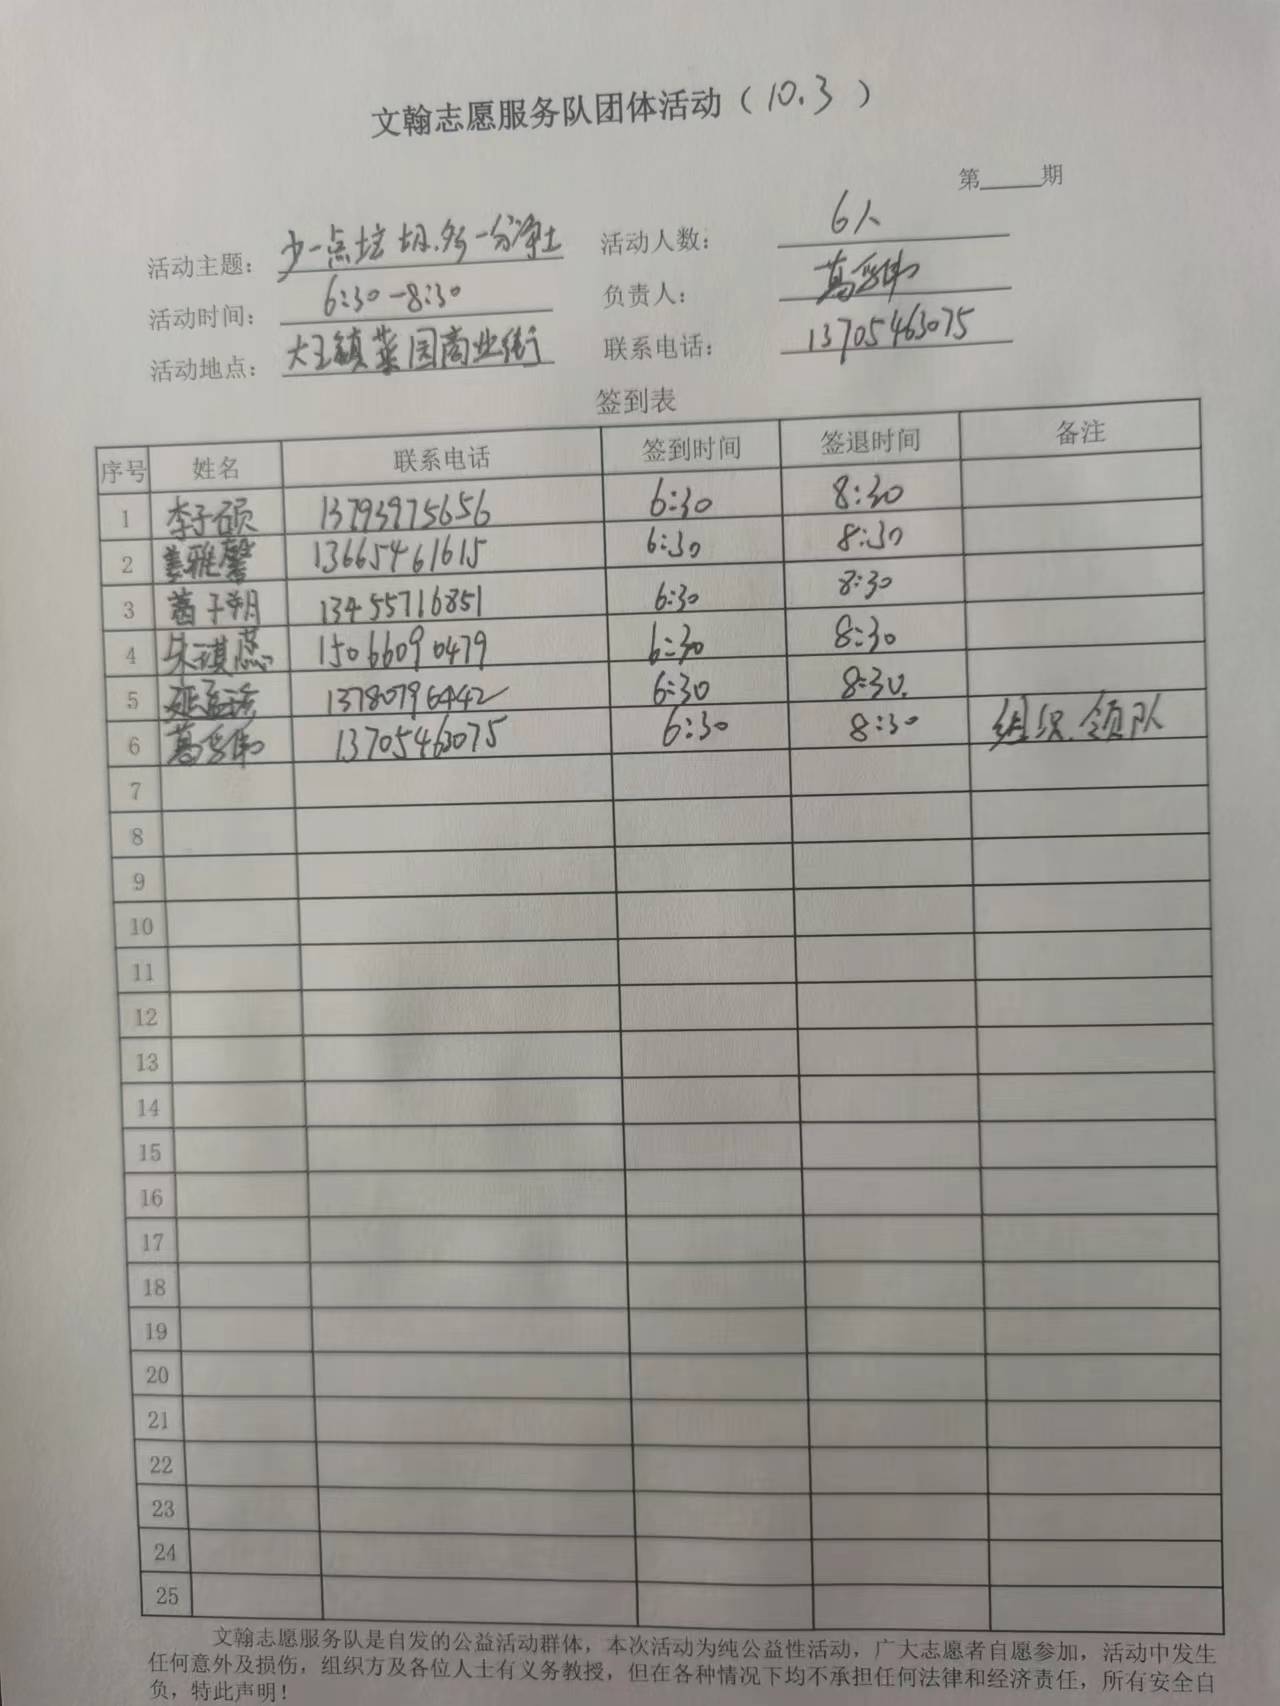 文翰志愿服务队团体活动（10.3）
第 期
活动主题：少一点垃圾.多一分净土 活动人数：6人
活动时间：6:30-8:30 负责人：葛
活动地点：大王镇菜园商业街 联系电话：13705463075
签到表
序号 姓名 联系电话 签到时间 签退时间 备注
1 李子硕 13793975656 6:30 8:30
2 姜雅馨 13665461615 6:30 8:30
3 葛子朔 13455716851 6:30 8:30
4 朱琪蕊 15066090479 6:30 8:30
5 延 13780796442 6:30 8:30.
6 葛 13705463075 6:30 8:30 组织.领队
7
8
9
10
11
12
13
14
15
16
17
18
19
20
21
22
23
24
25
文翰志愿服务队是自发的公益活动群体，本次活动为纯公益性活动，广大志愿者自愿参加，活动中发生
任何意外及损伤，组织方及各位人士有义务教授，但在各种情况下均不承担任何法律和经济责任，所有安全自
负，特此声明！